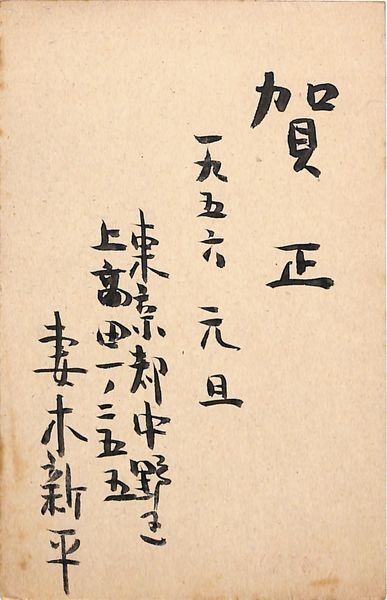 賀正
一九五六 元旦
東京都中野区
上高田一ノ二五五
妻木新平